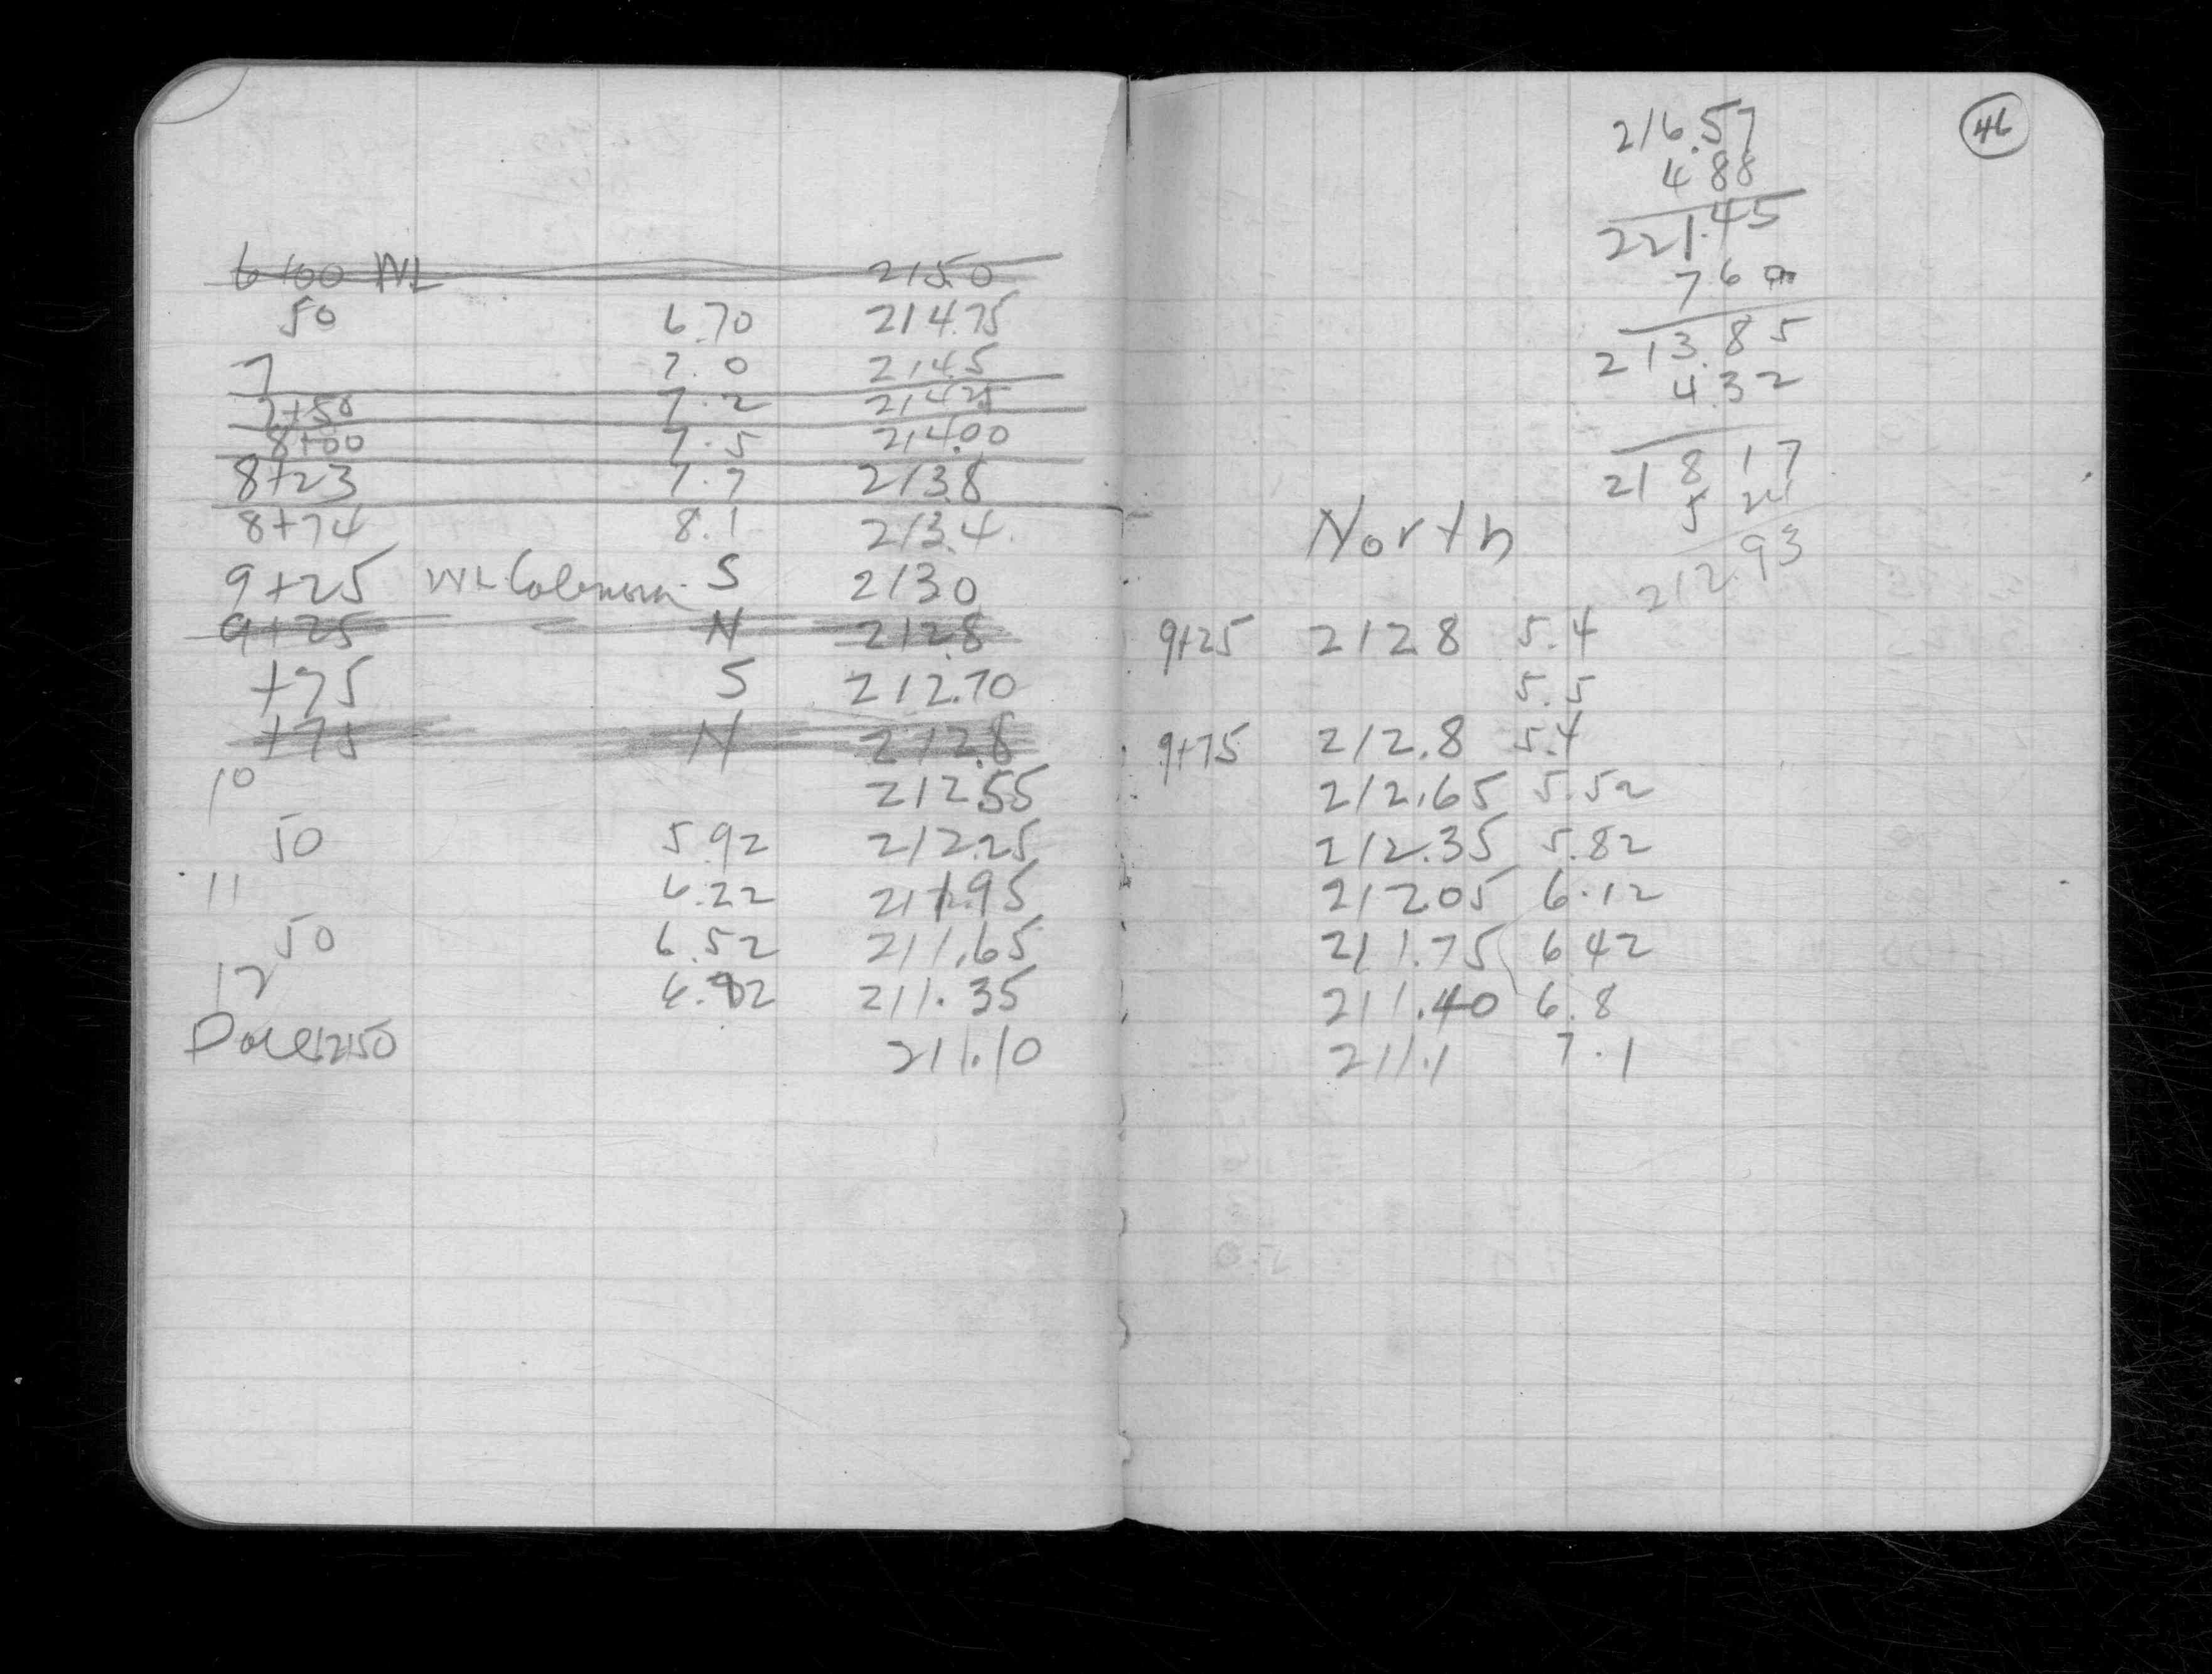 6+00 WL 215.0
50 6.70 214.75
7 7.0 214.5
7+50 7.2 214.25
8+00 7.5 214.00
8+23 7.7 213.8
8+74 8.1 213.4
9+25 WL S 213.0
9+25 N 212.8
+75 S 212.70
+75 N 212.8
10 212.55
50 5.92 212.25
11 6.22 211.95
50 6.52 211.65
12 6.82 211.35
12+50 211.10
46
216.57
4.88
221.45
7.60
213.85
4.32
218 17
5 24
212.93
North
9+25 212.8 5.4
5.5
9+75 212.8 5.4
212.65 5.52
212.35 5.82
212.05 6.12
211.75 6.42
211.40 6.8
211.1 7.1